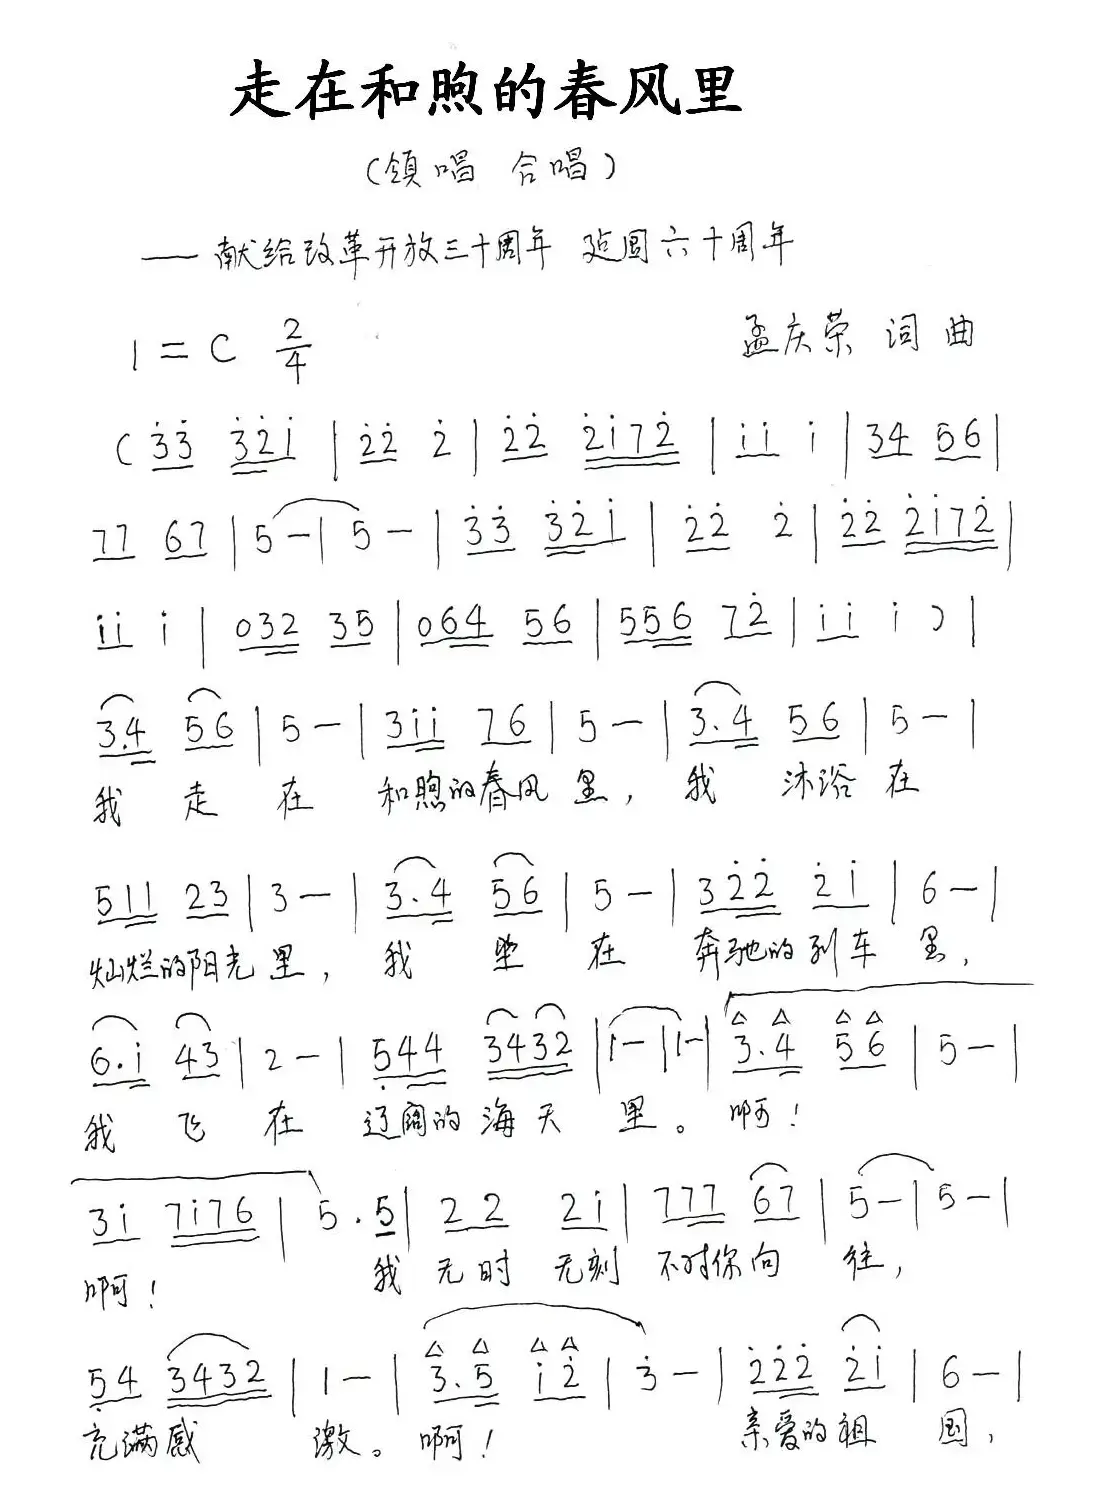 走在和煦的春风里
(领唱 合唱)
——献给改革开放三十周年 建国六十周年
1=C 2/4
孟庆荣 词曲
(3̇3̇ 3̇2̇i | 2̇2̇ 2̇ | 2̇2̇ 2̇i72̇ | ii i | 34 56 |
77 67 | 5 — | 5 — | 3̇3̇ 3̇2̇i | 2̇2̇ 2̇ | 2̇2̇ 2̇i72̇ |
ii i | 032 35 | 064 56 | 556 72̇ | ii i ) |
3.4 56 | 5 — | 3ii 76 | 5 — | 3.4 56 | 5 — |
我 走 在 和煦的春风 里, 我 沐浴 在
511 23 | 3 — | 3.4 56 | 5 — | 32̇2̇ 2̇i | 6 — |
灿烂的阳光里, 我 坐 在 奔驰的列车 里,
6.i 43 | 2 — | 5̣44 3432 | 1 — | 1 — | 3.4 56 | 5 — |
我 飞 在 辽阔的 海 天 里。 啊!
3i 7i76 | 5.5 | 22 2i | 777 67 | 5 — | 5 — |
啊! 我 无时 无刻 不对你向 往,
5̣4 3432 | 1 — | 3̇.5 i2̇ | 3̇ — | 2̇2̇2̇ 2̇i | 6 — |
充满感 激。 啊! 亲爱的祖 国,